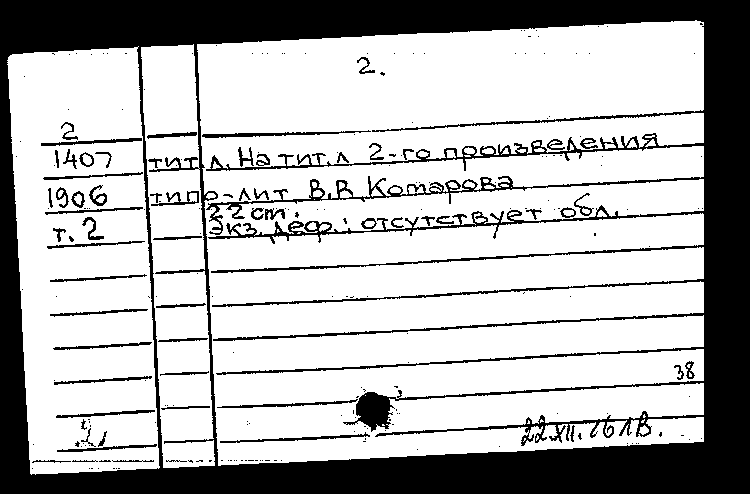 2.
2
1407 тит.л. На тит.л 2-го произведения
1906 типо-лит. В.В. Комарова
22 cm.
т. 2 Экз. деф.: отсутствует обл.
38
2,
22.XII.76 ЛВ.